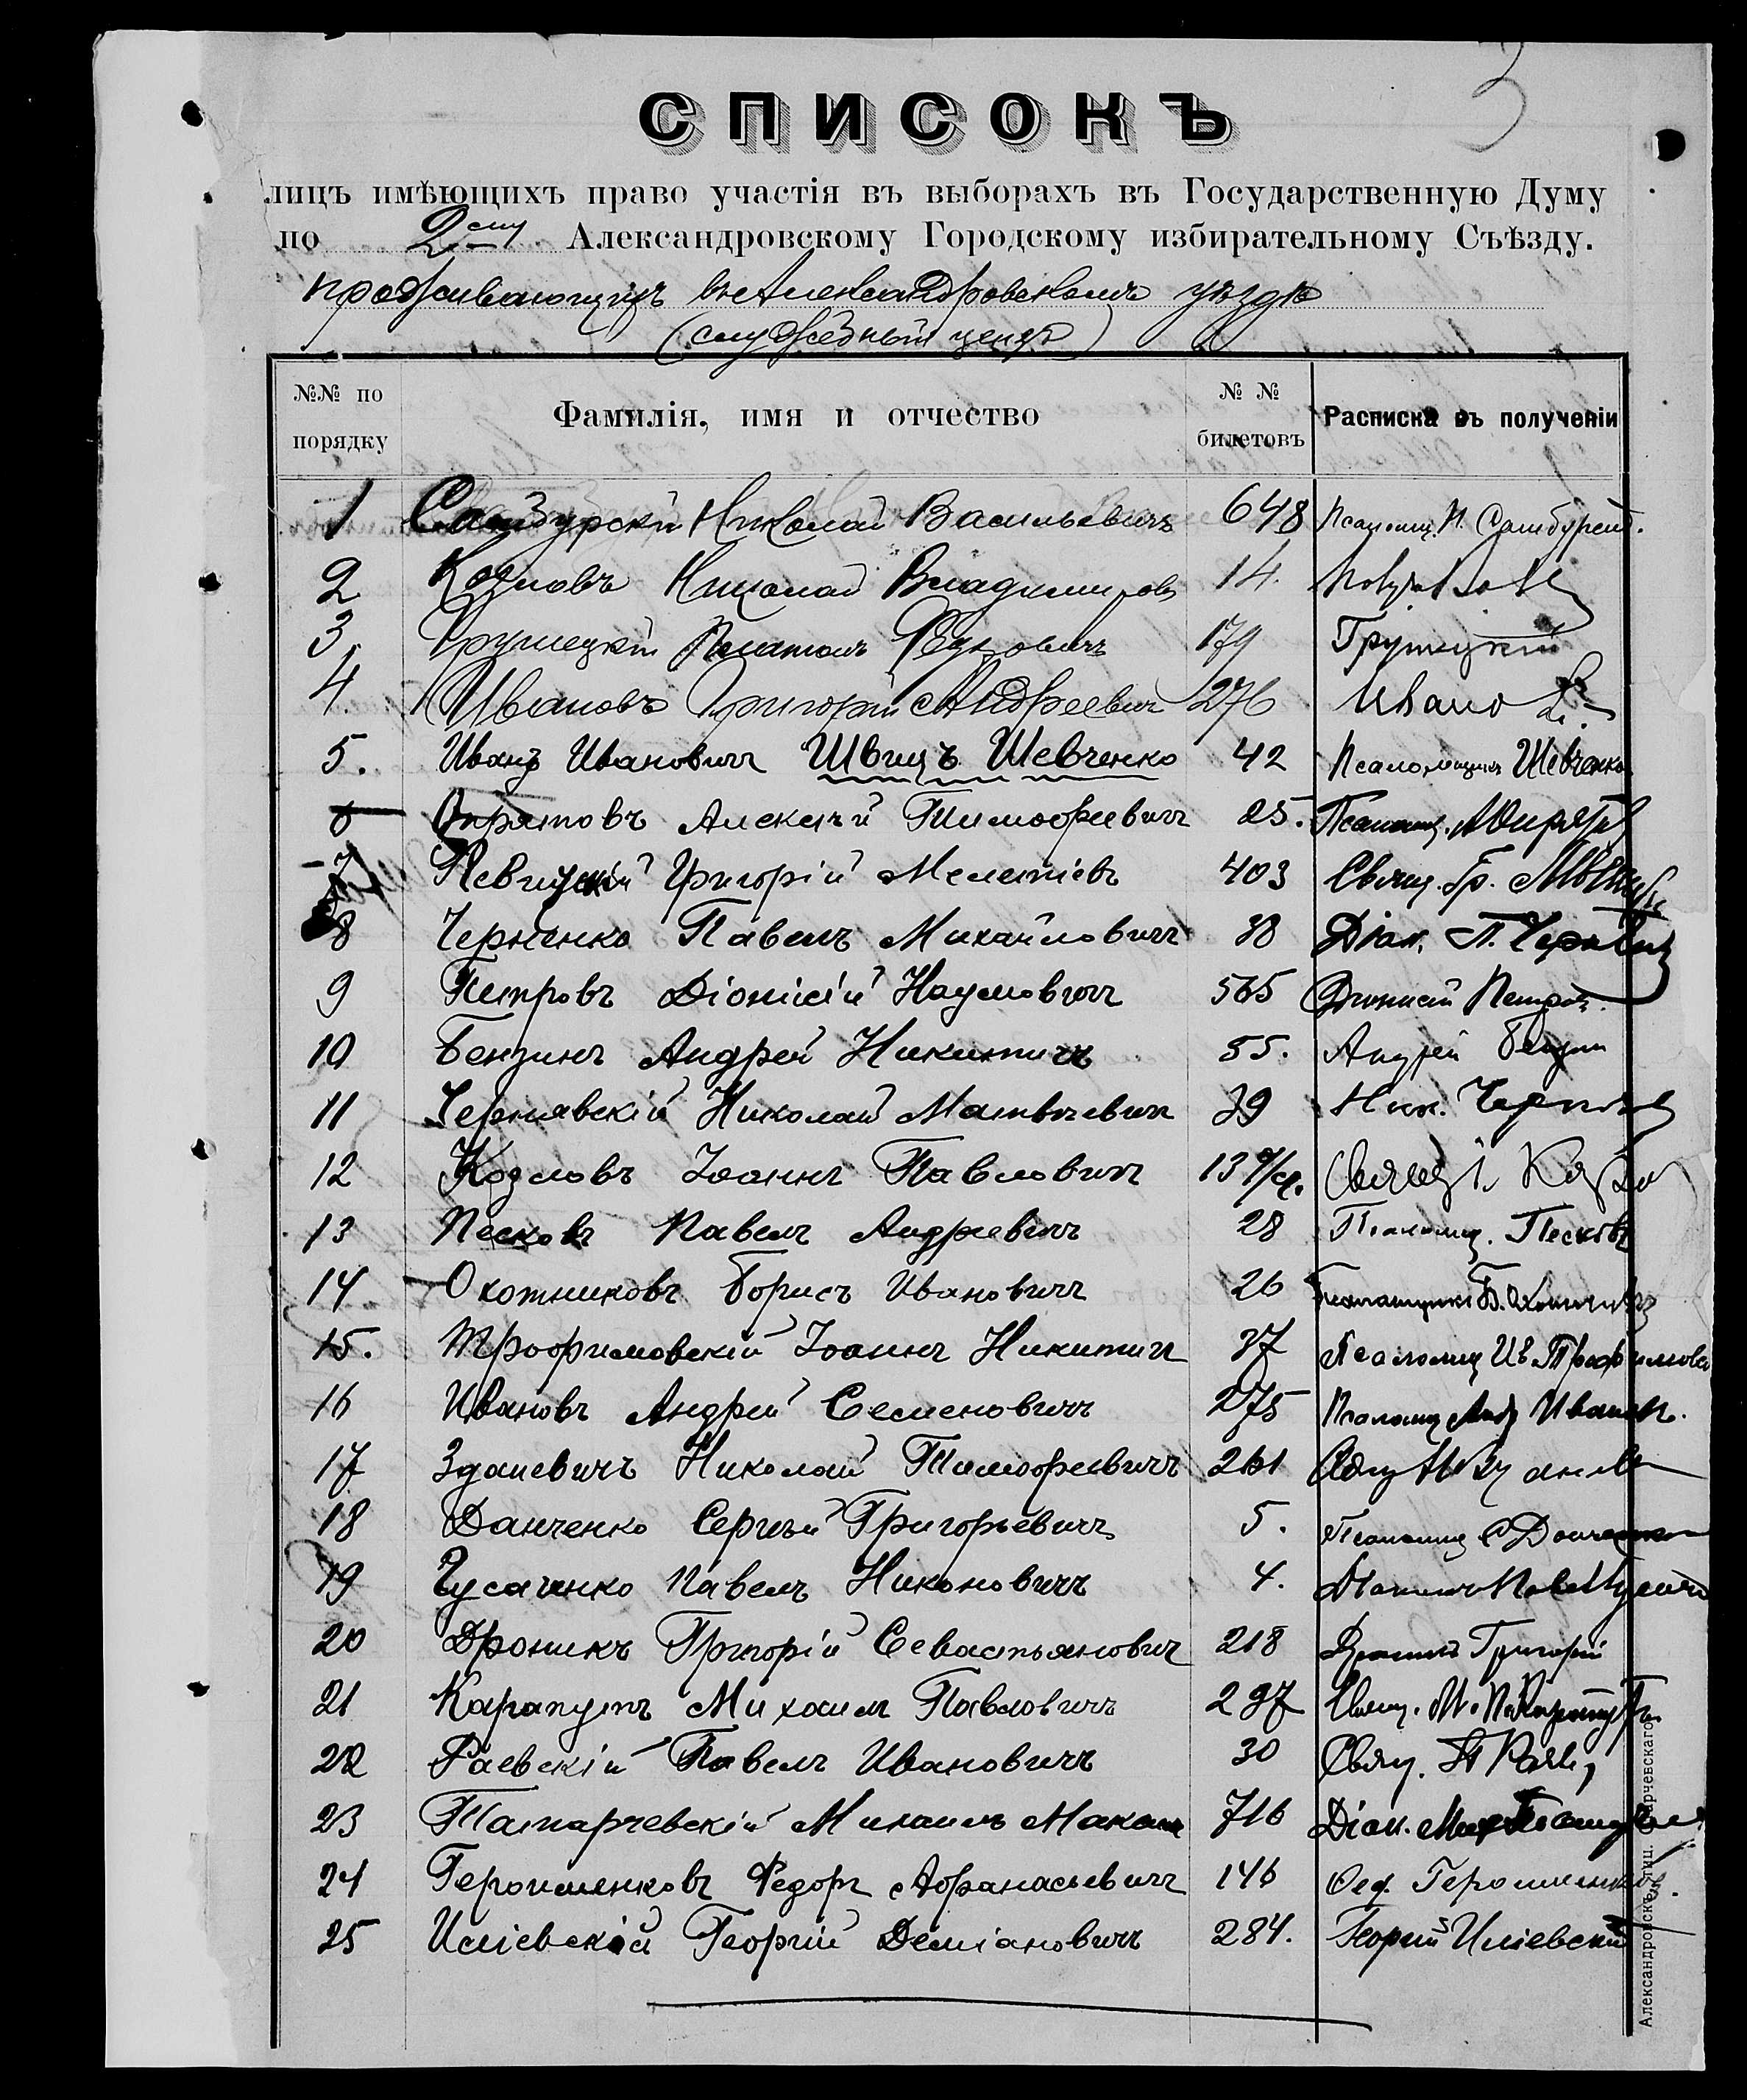 3
СПИСОКЪ
лицъ имѣющихъ право участія въ выборахъ въ Государственную Думу
по 2му Александровскому Городскому избирательному Съѣзду.
проживающихъ въ Александровскомъ уѣздѣ
(служебный цензъ)
№№ по порядку Фамилія, имя и отчество №№ билетовъ Расписка въ полученіи
1 Самбурскій Николай Васильевичъ 648 Псаломщ. Н. Самбурскій.
2 Козловъ Николай Владимировъ 14.
3. Грушецкій Платонъ 179 Грушецкій
4. Ивановъ Григорій Андреевичъ 276 Ивано
5. Иванъ Ивановичъ Швецъ Шевченко 42 Псаломщикъ Шевченко
6 Опрятовъ Алексѣй Тимофеевичъ 25. Псаломщ.
7 Левицкій Григорій Мелетіевъ 403 Свящ. Гр.
8 Черненко Павелъ Михайловичъ 38 Діак. П.
9 Петровъ Діонисій Наумовичъ 565 Діонисій Петровъ.
10 Бензинъ Андрей Никитичъ 55. Андрей Бензин
11 Чернявскій Николай Матвѣевичъ 39 Ник.
12 Козловъ Іоаннъ Павловичъ 13
13 Песковъ Павелъ Андреевичъ 28 Псаломщ. Песковъ
14 Охотниковъ Борисъ Ивановичъ 26 Псаломщикъ Б. Охотниковъ
15. Трофимовскій Іоаннъ Никитич 37 Псаломщ Ив. Трофимовск
16 Ивановъ Андрей Семеновичъ 275 Псаломщ Анд Иванов.
17 Зданевичъ Николай Тимофеевичъ 261
18 Данченко Сергѣй Григорьевичъ 5. Псаломщ С Данченко
19 Гусаченко Павелъ Никоновичъ 4.
20 Дроникъ Григорій Севастьяновичъ 218 Дроникъ Григорій
21 Карапутъ Михаилъ Павловичъ 297 Свящ. М. П. Карапутъ
22 Раевскій Павелъ Ивановичъ 30 Свящ. П Раев
23 Татарчевскій Михаилъ 716 Діак. Мих
24 Герошенковъ Федоръ Афанасьевичъ 146 Фед. Герошенков.
25 Иліевскій Георгій Деміановичъ 284. Георгій Иліевскій
Александровскъ, тип.